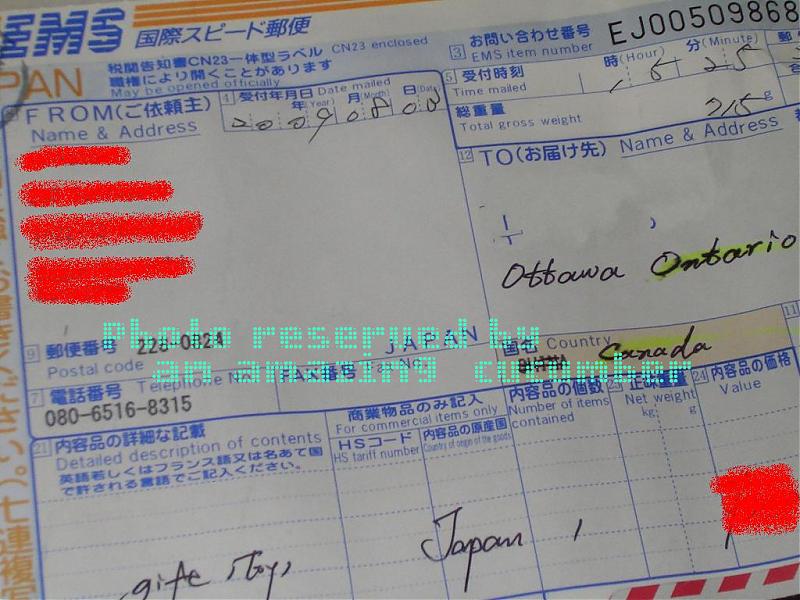 EMS 国際スピード郵便
PAN
税関告知書CN23一体型ラベル CN23 enclosed
職権により開くことがあります
May be opened officially
3 お問い合わせ番号 EJ00509868
EMS item number
5 受付時刻 時(Hour) 分(Minute)
Time mailed 15 25
総重量 215 g
Total gross weight
FROM(ご依頼主)
Name & Address
4 受付年月日 Date mailed
年(Year) 月(Month) 日(Date)
2009 08 03
12 TO(お届け先) Name & Address
Ottawa Ontario
9 郵便番号 226-0824
Postal code
JAPAN
Photo reserved by
an amazing cucumber
国名 Country Canada
11
7 電話番号 Telephone No.
080-6516-8315
FAX番号 Fax No.
21 内容品の詳細な記載
Detailed description of contents
英語若しくはフランス語又は名あて国
で許される言語でご記入ください。
商業物品のみ記入
For commercial items only
HSコード
HS tariff number
内容品の原産国
Country of origin of the goods
内容品の個数
Number of items
contained
23 正味重量
Net weight
kg g
24 内容品の価格
Value
gift Toys
Japan 1